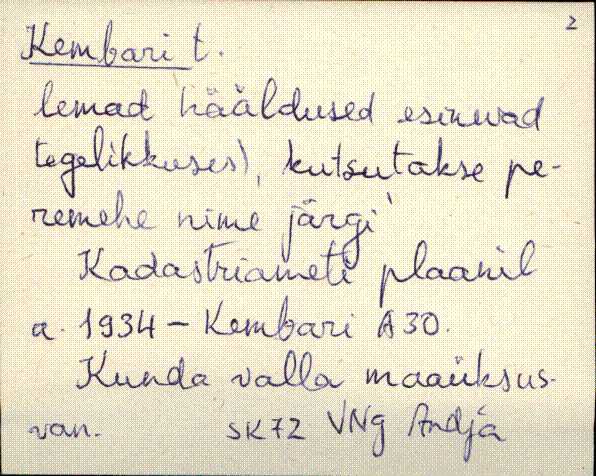 2
Kembari t.
lemad hääldused esinevad
tegelikkuses), kutsutakse pe-
remehe nime järgi
Kadastriameti plaanil
a. 1934 - Kembari A30.
Kunda valla maaüksus.
van. SK72 VNg Andja